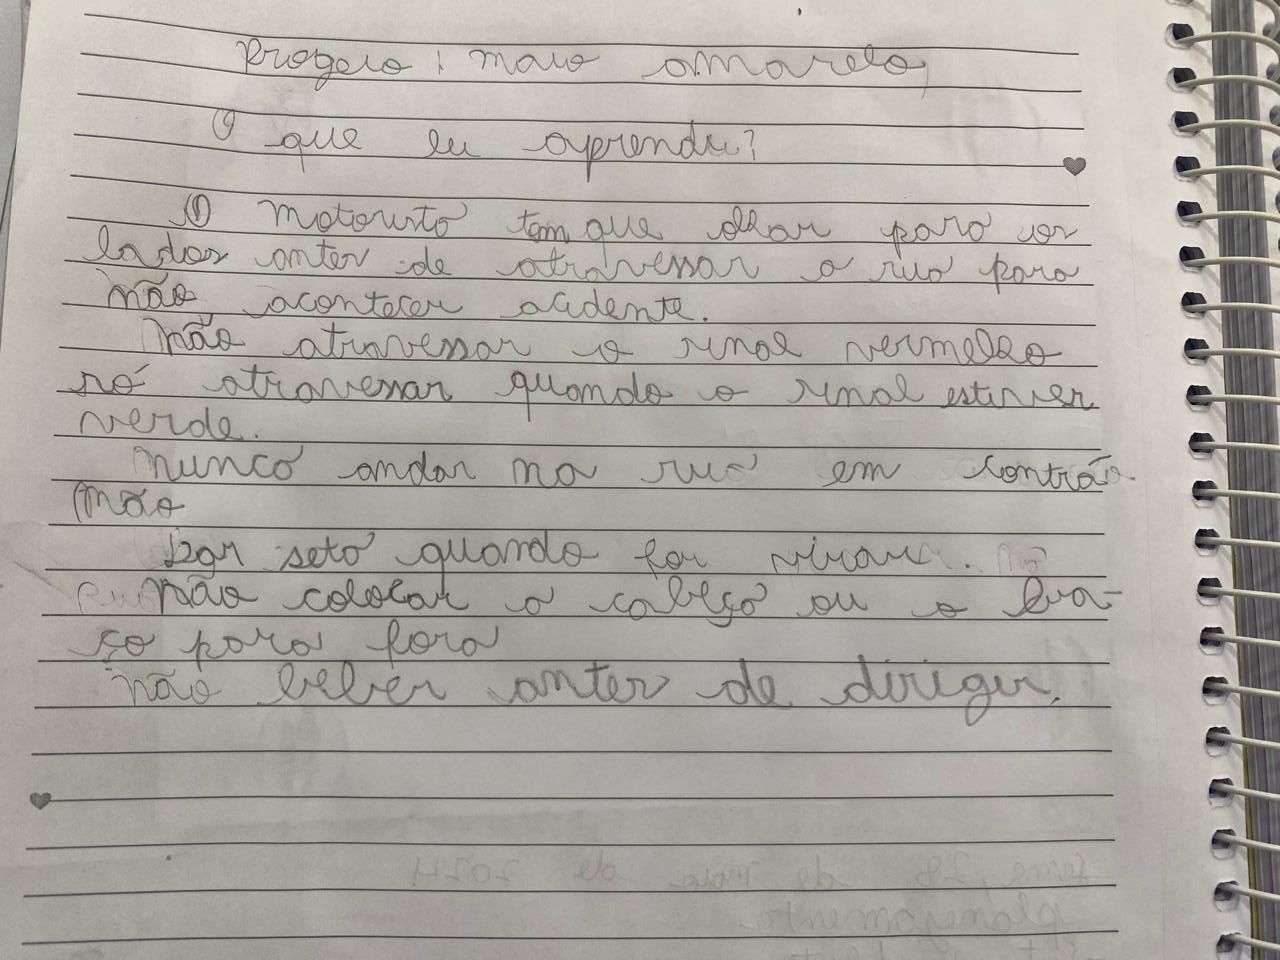 Progeto: maio amarelo,
O que eu aprendi?
O motoristo tem que olhar para os
lados antes de atravessar a rua para
não acontecer acidente.
Não atravessar o sinal vermelho
só atravessar quando o sinal estiver
verde.
Nunca andar na rua em contrão
mão
Ligar seta quando for virar.
Não colocar a cabeça ou o bra-
ço para fora
Não beber antes de dirigir.